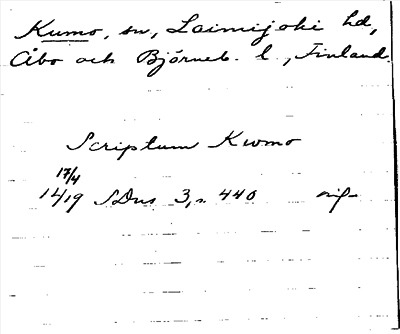 Kumo, sn, Loimijoki hd,
Åbo och Björneb. l, Finland.
Scriptum Kwmo
17/4
1419 SDns 3, s. 440